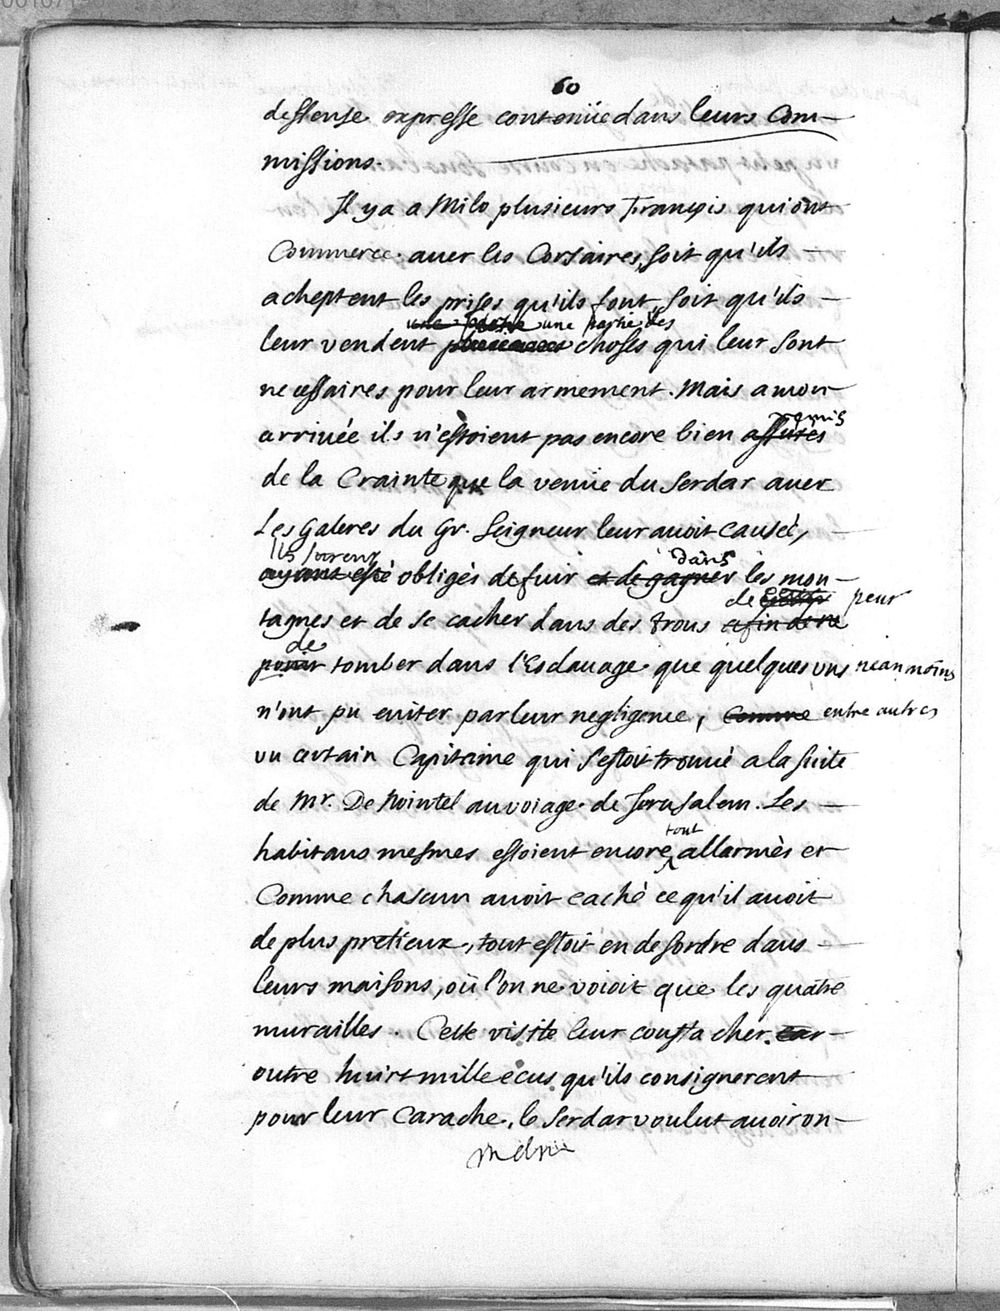 60
deffense expresse contenüe dans leurs Com-
missions.
Il y a a Milo plusieurs François qui ont
Commerce avec les Corsaires, soit qu'ils
acheptent les prises qu'ils font, soit qu'ils
une partie des
leur vendent choses qui leur sont
necessaires pour leur armement. Mais a mon
remis
arriuée ils n'estoient pas encore bien assurés
de la Crainte que la venüe du Serdar avec
Les Galeres du Gr. Seigneur leur auoit causeé,
Ils furent dans
ayant esté obligés de fuir et de gagner les mon-
de peur
tagnes et de se cacher dans des trous afin de ne
de
pouuoir tomber dans l'Esclauage que quelques uns neanmoins
n'ont pu euiter par leur negligence, Comme entre autres
un certain Capitaine qui s'estoit trouué a la suite
de Mr. De Nointel au voiage de Jerusalem. Les
tout
habitans mesmes estoient encore allarmés et
Comme chascun auoit caché ce qu'il auoit
de plus pretieux, tout estoit en desordre dans
leurs maisons, où l'on ne voioit que les quatre
murailles. Cette visite leur cousta cher. car
outre huict mille ecus qu'ils consignerent
pour leur Carache, le Serdar voulut auoir on-